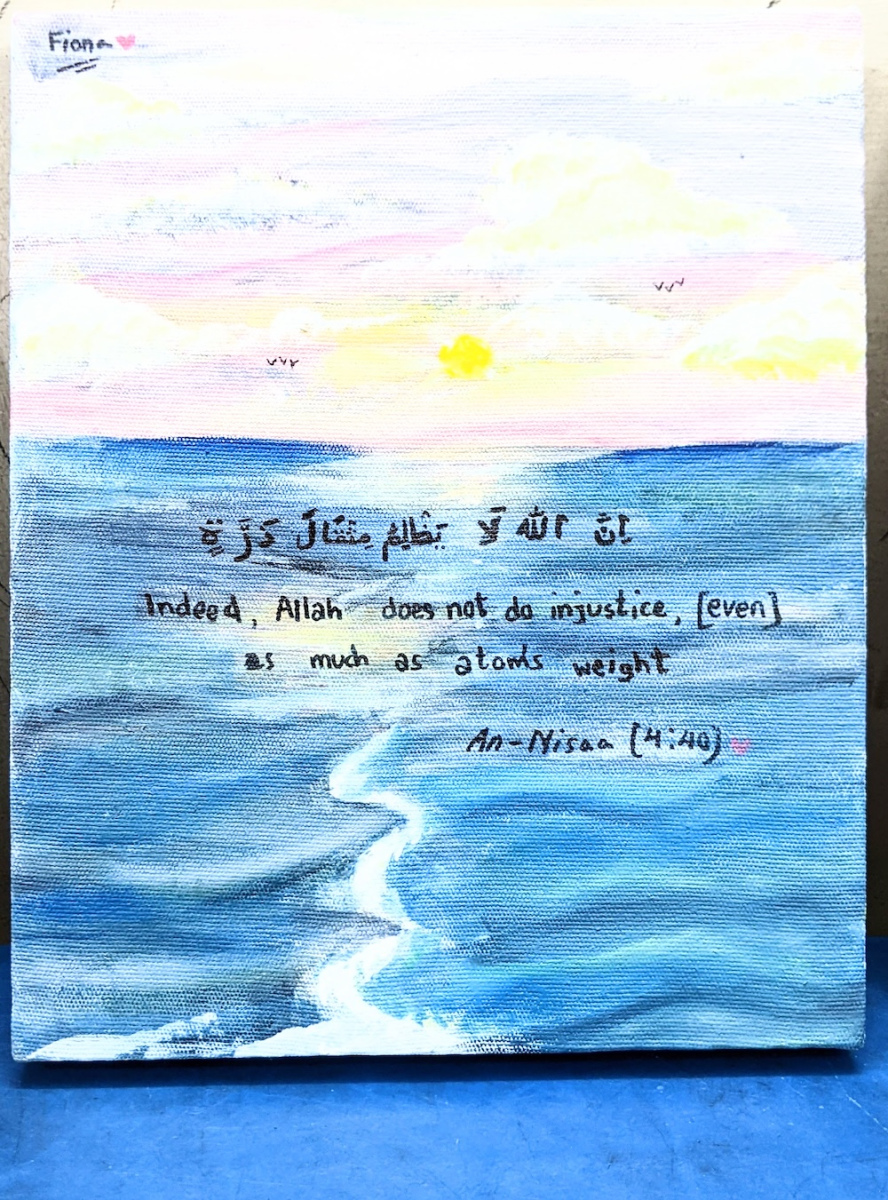 Fiona
إنَّ الله لَا يَظْلِمُ مِثْقَالَ ذَرَّةٍ
Indeed, Allah does not do injustice, [even]
as much as atom's weight
An-Nisaa [4:40]